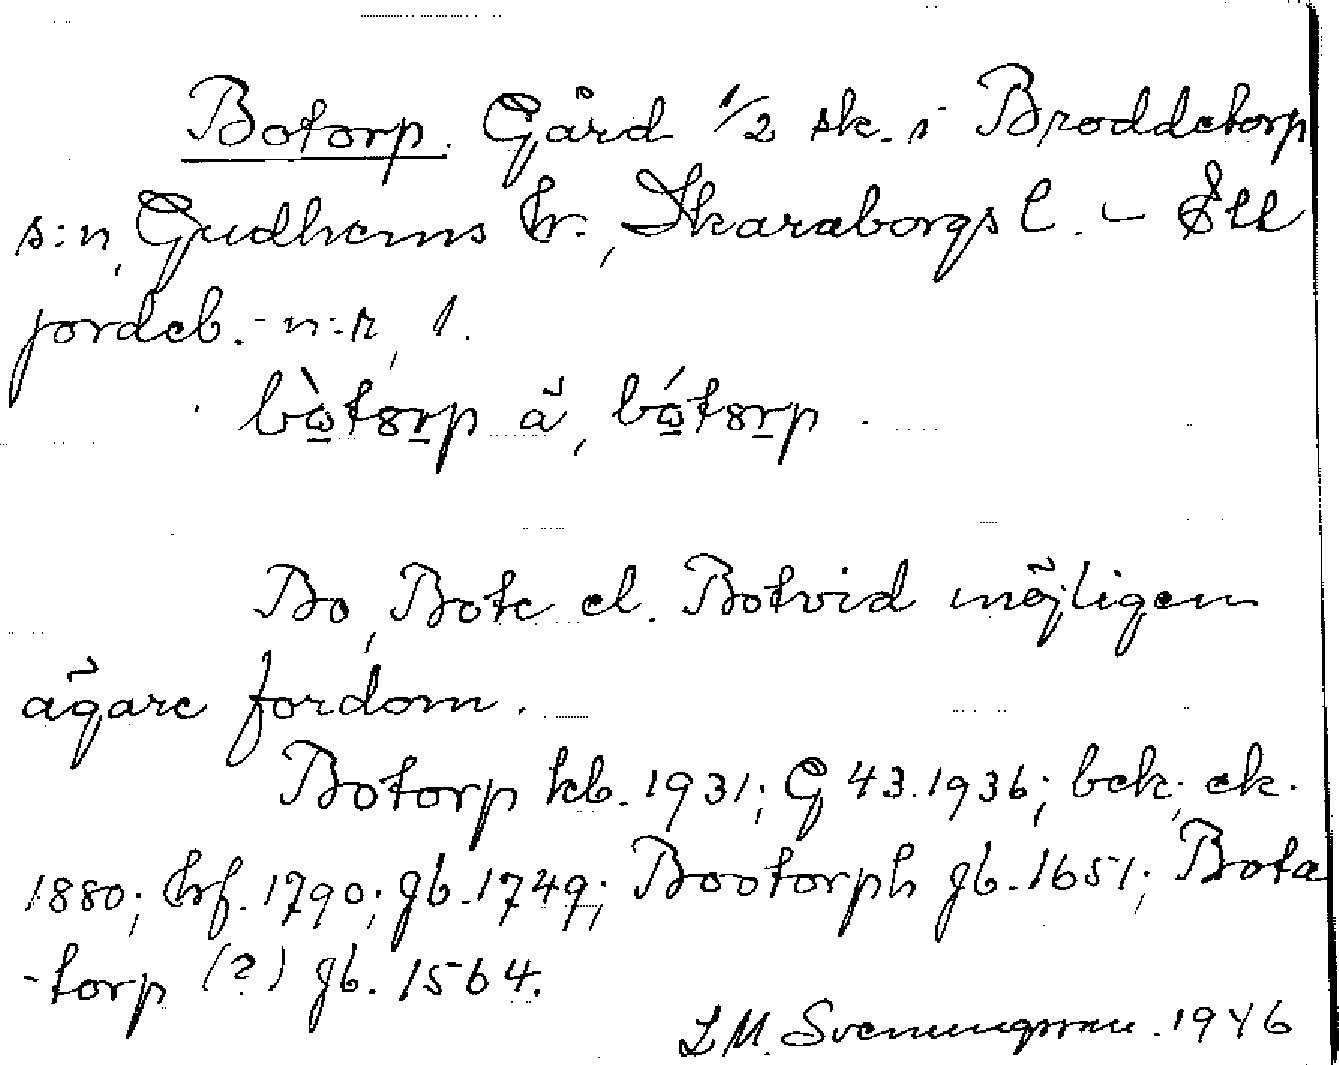 Botorp. Gård 1/2 sk. i Broddetorp
s:n, Gudhems hr., Skaraborgs l. – Ett
jordeb.-n:r, 1.
bòtɷrp å, bótɷrp.
Bo, Bote el. Botvid möjligen
ägare fordom.
Botorp kb. 1931; G 43.1936; bek; ek.
1880; hrf. 1790; gb. 1749; Bootorph gb. 1651; Bota
-torp (?) gb. 1564.
L M. Svenungsson. 1946